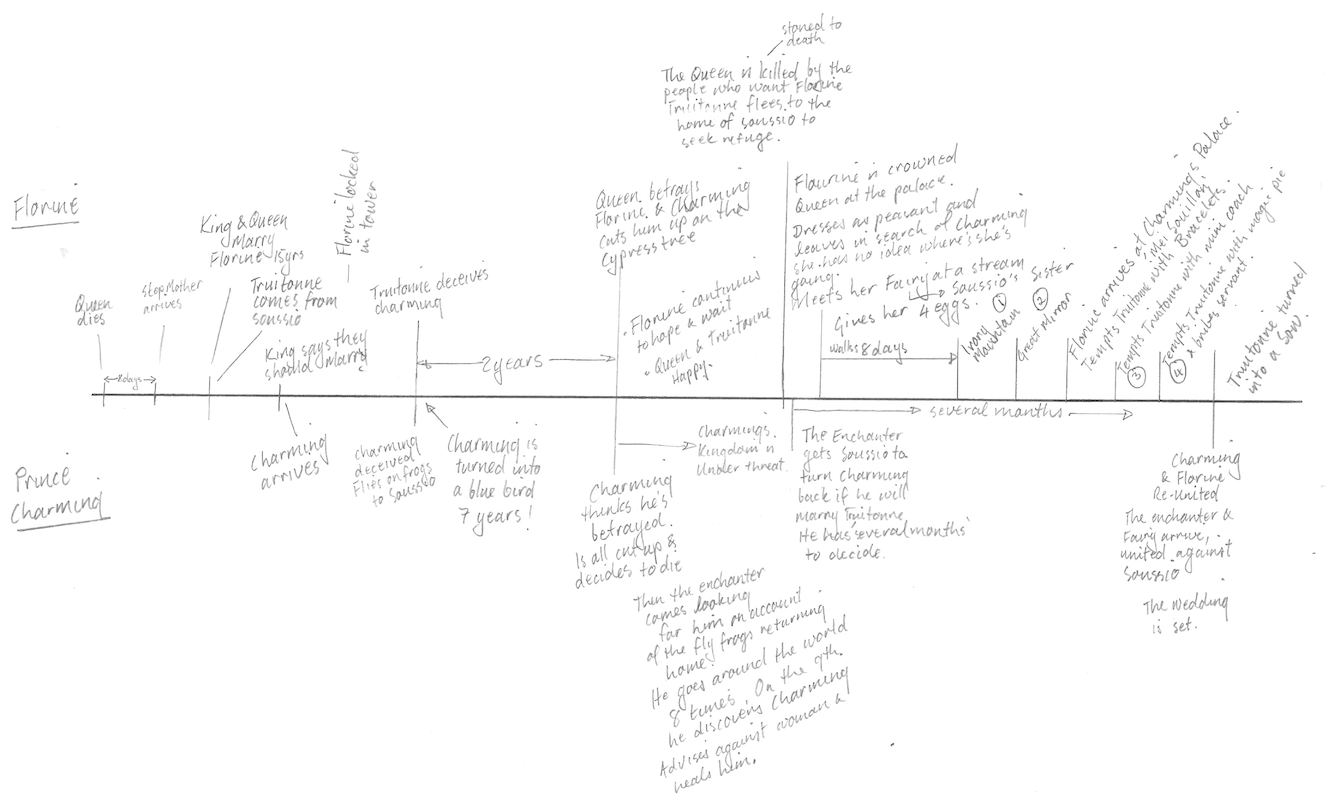 stoned to
death
The Queen is killed by the
people who want Florine
Truitonne flees to the
home of Soussio to
seek refuge.
Florine
Queen
dies
8days
stepmother
arrives
King & Queen
Marry
Florine 15yrs
Truitonne
comes from
Soussio
Florine locked
in tower
King says they
should Marry
Truitonne deceives
charming
2 years
Queen betrays
Florine & Charming
cuts him up on the
Cypress tree
• Florine continues
to hope & wait
• Queen & Truitonne
Happy.
Flaurine is crowned
Queen at the palace.
Dresses as peasant and
leaves in search of Charming
she has no idea where's she's
going.
Meets her Fairy at a stream
Soussio's Sister
Gives her 4 eggs.
walks 8 days
Ivory
Mountain
1
Great Mirror
2
Florine arrives at Charming's Palace.
Mei Souillon,
Tempts Truitonne with Bracelets.
Tempts Truitonne with mini coach
3
Tempts Truitonne with magic pie
& bribes servant.
4
Truitonne turned
into a Sow.
several months
Prince
Charming
Charming
arrives
charming
deceived
Flies on frogs
to Soussio
Charming is
turned into
a blue bird
7 years!
Charming
thinks he's
betrayed.
Is all cut up &
decides to die
Charmings
Kingdom is
Under threat.
Then the enchanter
comes looking
for him on account
of the fly frogs returning
home.
He goes around the world
8 times. On the 9th.
he discovers Charming
Advises against woman &
heals him.
The Enchanter
gets Soussio to
turn Charming
back if he will
marry Truitonne.
He has 'several months'
to decide.
Charming
& Florine
Re-United
The enchanter &
Fairy arrive,
united against
Soussio
The wedding
is set.